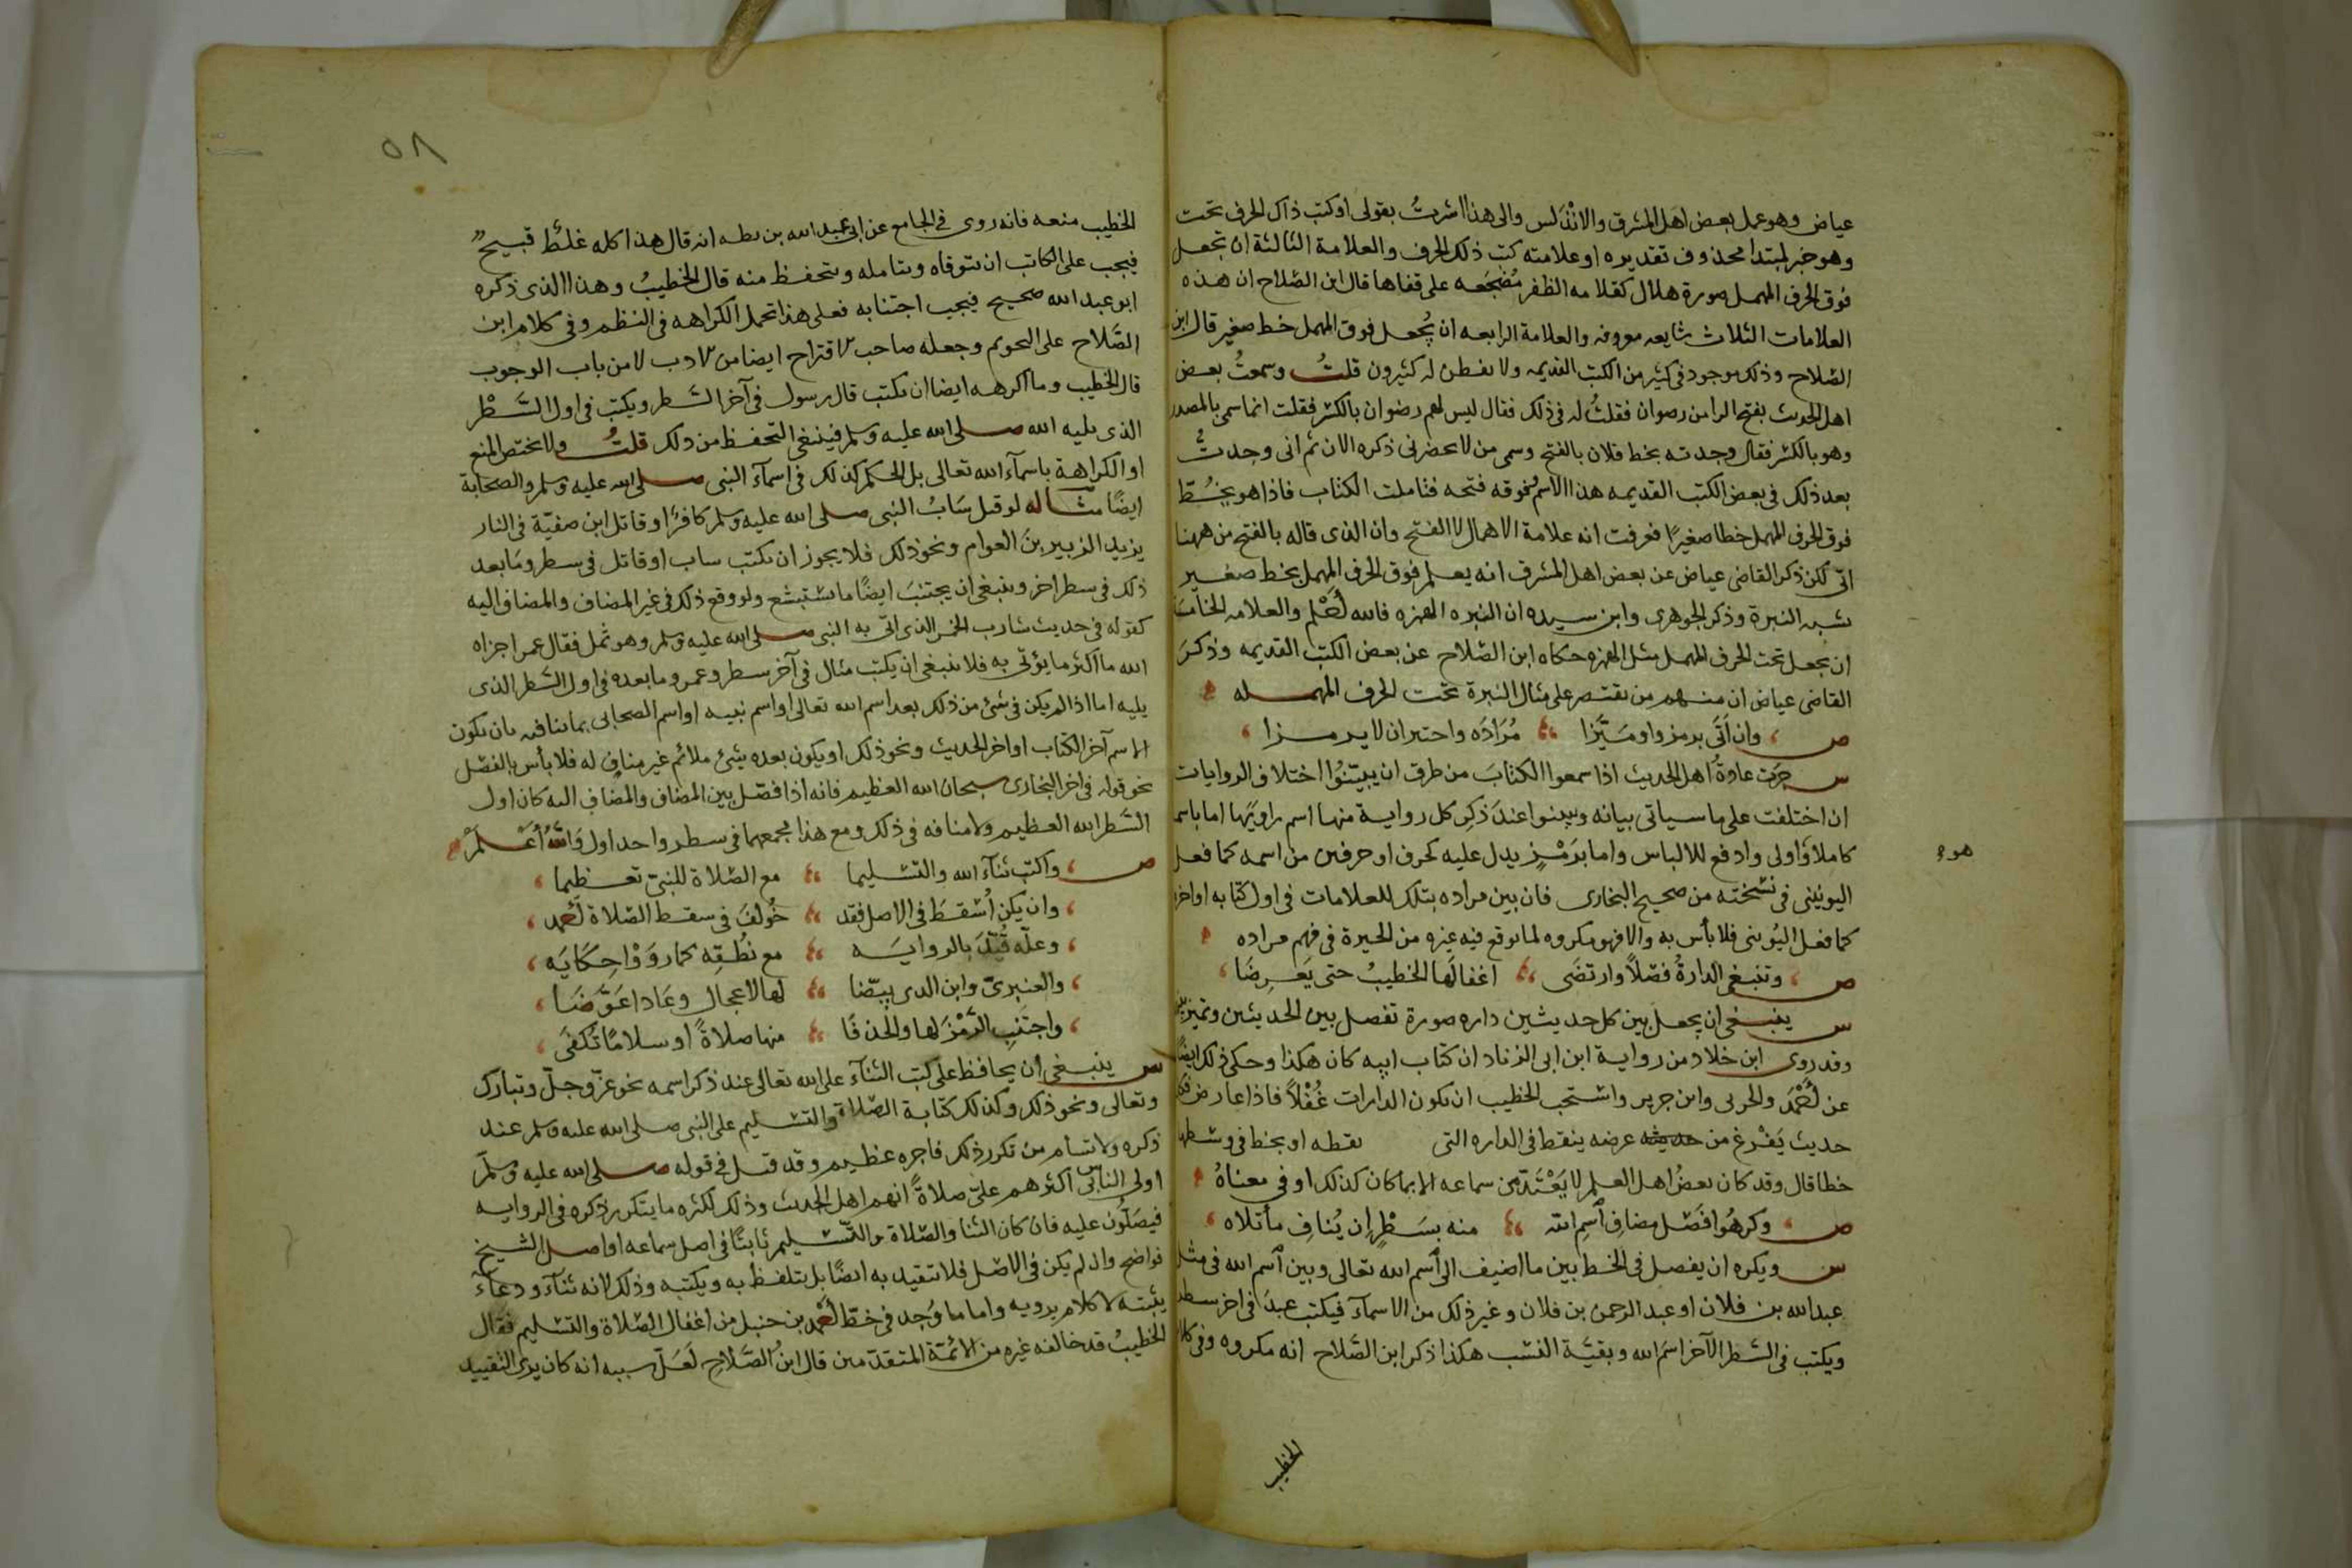 عياض وهو عمل بعض اهل المشرق والاندلس والى هذا اشرتُ بقولى او كتب ذاك الحرف تحت
وهو خبر لمبتدا محذوف تقديره او علامته كتب ذلك الحرف والعلامة الثالثة ان تجعل
فوق الحرف المهمل صورة هلال كقلامه الظفر مُضْجَعه على قفاها قال ابن الصّلاح ان هذه
العلامات الثلاث شايعه معروفه والعلامة الرابعه ان يُجعل فوق المهمل خط صغير قال ابن
الصّلاح وذلك موجود فى كثير من الكتب القديمه ولا يفطن له كثيرون قلتُ وسمعتُ بعض
اهل الحديث يفتح الرا من رضوان فقلتُ له فى ذلك فقال ليس لهم رضوان بالكسر فقلت انما سمى بالمصدر
وهو بالكسر فقال وجدته بخط فلان بالفتح وسمى من لا يحضرنى ذكره الان ثم انى وجدتُّ
بعد ذلك فى بعض الكتب القديمه هذا الاسم وفوقه فتحه فتاملت الكتاب فاذا هو يخُطّ
فوق الحرف المهمل خطا صغيرًا فعرفت انه علامة الاهمال لا الفتح وان الذى قاله بالفتح من ههنا
اتى لكن ذكر القاضى عياض عن بعض اهل المشرق انه يعلم فوق الحرف المهمل بخط صغير
يشبه النبرة وذكر الجوهرى وابن سيده ان النبره الهمزه فالله أعْلم والعلامه الخامسة
ان يجعل تحت الحرف المهمل مثل الهمزه حكاه ابن الصّلاح عن بعض الكتب القديمه وذكرَ
القاضى عياض ان منهم من يقتصر على مثال النبرة تحت الحرف المهمله
ص ، وان اَتَى برمز راو ميَّزا ؛ مُرَادَه واختير ان لا يرمزا ،
س جرَت عادةُ اهل الحديث اذا سمعوا الكتابَ من طرق ان يبيّنوُا اختلاف الروايات
ان اختلفت على ما سياتى بيانه ويبينوا عندَ ذكِر كل رواية منها اسم راويَها اما باسمه
كاملا وَاولى وادفع للالباس واما برَمْزٍ يدل عليه كحرف او حرفين من اسمه كما فعل
هو
اليونينى فى نسْخته من صحيح البخارى فان بين مراده بتلك للعلامات فى اول كتابه او اخره
كما فعل اليُونينى فلا بأس به والا فهو مكروه لما يوقع فيه غيره من الحيرة فى فهم مراده
ص ، وتنبغى الدارةُ فصْلاً وارتضَى ؛ اغفالَها الخطيبُ حتى يَعَرِضَا ،
س ينبغى ان يجعل بين كل حديثين داره صورة تفصل بين الحديثين وتميز بينهما
وقد روى ابن خلاد من رواية ابن ابى الزناد ان كتاب ابيه كان هكذا وحكى ذلك ايضًا
عن أحْمَد والحربى وابن جرير واستحب الخطيب ان تكون الدارات غُفْلاً فاذا عارض فكل
حديث يَفْرغ من عرضه ينقط فى الداره التى نقطه او يخط فى وسطها
خطا قال وقد كان بعضُ اهل العلم لا يَعْتَدّ من سماعه الا بما كان كذلك او فى معناهُ
ص ، وكرهُوا فَصْل مضافِ ٱسمِ الله ؛ منه بسَطْرٍ ان يُنافِ ما تلاه ،
س ويكره ان يفصل فى الخط بين ما اضيف الى ٱسم الله تعالى وبين ٱسم الله فى مثل
عبد الله بن فلان او عبد الرحمن بن فلان وغير ذلك من الاسمآء فيكتب عبدَ فى اخر سطر
ويكتب فى السَّطر الآخر اسَم الله وبقيَّة النسب هكذا ذكر ابن الصَّلاح انه مكروه وفى كلام
الخطيب
٥٨
الخطيب منعه فانه روى فى الجامع عن ابى عبد الله بن بطه انه قال هذا كله غلَط قبيح
فيجب على الكاتب ان يتوقاه ويتامله ويتحفظ منه قال الخطيبُ وهذا الذى ذكره
ابو عبد الله صحيح فيجب اجتنابه فعلى هذا تحمل الكراهه فى النظم وفى كلام ابن
الصَّلاح على التحريم وجعله صاحب الاقتراح ايضا من الادب لا من باب الوجوب
قال الخطيب ومما اكرهه ايضا ان يكتب قال رسول فى آخر السَّطر ويكتب فى اول السَّطْر
الذى يليه الله صلى الله عليه وسلم فينبغى التحفظ من ذلك قلتُ ولا يختص المنع
او الكراهة باسمآء الله تعالى بل الحكم كذلك فى اسمآء النبى صلى الله عليه وسلم والصحابة
ايضًا مثاله لو قيل سَابُ النبى صلى الله عليه وسلم كافرٌ او قاتل ابن صفيّة فى النار
يريد الزبير بنَ العوام ونحو ذلك فلا يجوز ان يكتب ساب او قاتل فى سطر ومَا بعد
ذلك فى سطر اخر وينبغى ان يجتنبَ ايضًا ما يستبشع ولو وقع ذلك فى غير المضاف والمضاف اليه
كقوله فى حديث شارب الخمر الذى اتى به النبى صلى الله عليه وسلم وهو ثمل فقال عمر اجزاه
الله ما اكثر ما يؤتى به فلا ينبغى ان يكتب مثال فى آخر سطر وعمر وما بعده فى اول السَّطر الذى
يليه اما اذا لم يكن فى شئ من ذلك بعد اسم الله تعالى او اسم نبيه او اسم الصحابى ما ينافيه بان يكون
الاسم آخر الكتاب او اخر الحديث ونحو ذلك او يكون بعده شئ ملائم غير منافٍ له فلا بأس بالفصْل
نحو قوله فى اخر البخارى سبحان الله العظيم فانه اذا فصّل بين المضاف والمضاف اليه كان اول
السَّطر الله العظيم ولا منافاه فى ذلك ومع هذا فجمعهما فى سطر واحد اولى وَاللهُ أعْلمْ
ص ، واكتب ثنآء الله والتسْليما ؛ مع الصّلاة للنبىّ تعظيما ،
، وان يكن اُسْقطَ فى الاصل فقد ؛ خُولفَ فى سقط الصّلاة أحمد ،
، وعلّه قُيّدَ بالروايَه ؛ مع نُطْقِه كما روَوْا حِكَايَه ،
، والعنبرىّ وابن المدينى بيّضا ؛ لها لاعجال وعَادا عَوَّضَا ،
، واجتنبِ الرَّمْزَ لها والحذفَا ؛ منها صلاةً او سلامًا تُكْفَى ،
س ينبغى أن يحافظ على كتب الثنآء على الله تعالى عند ذكر اسمه نحو عزّ وجلّ وتبارك
وتعالى ونحو ذلك وكذلك كتابة الصّلاة والتسْليم على النبى صلى الله عليه وسلم عند
ذكره ولا تسأم من تكرر ذلك فاجره عظيم وقد قيل فى قوله صلى الله عليه وسلّم
اولى الناس بى اكثرهم علىّ صلاةً انهم اهل الحديث وذلك لكثره ما يتكرر ذكره فى الروايه
فيصَلّون عليه فان كان الثنا والصّلاة والتسْليم ثابتًا فى اصل سماعه او اصل الشيخ
فواضح وان لم يكن فى الاصْل فلا تتقيد به ايضًا بل يتلفظ به ويكتبه وذلك لانه ثنآء ودعآء
يثبته لا كلام يرويه واما ما وُجد فى خطّ أحْمد بن حنبل من اغفال الصّلاة والتسْليم فقال
الخطيبُ قد خالفه غيره من الائمّة المتقدّمين قال ابنُ الصَّلاح لَعَلّ سببه انه كان يرى التقييد